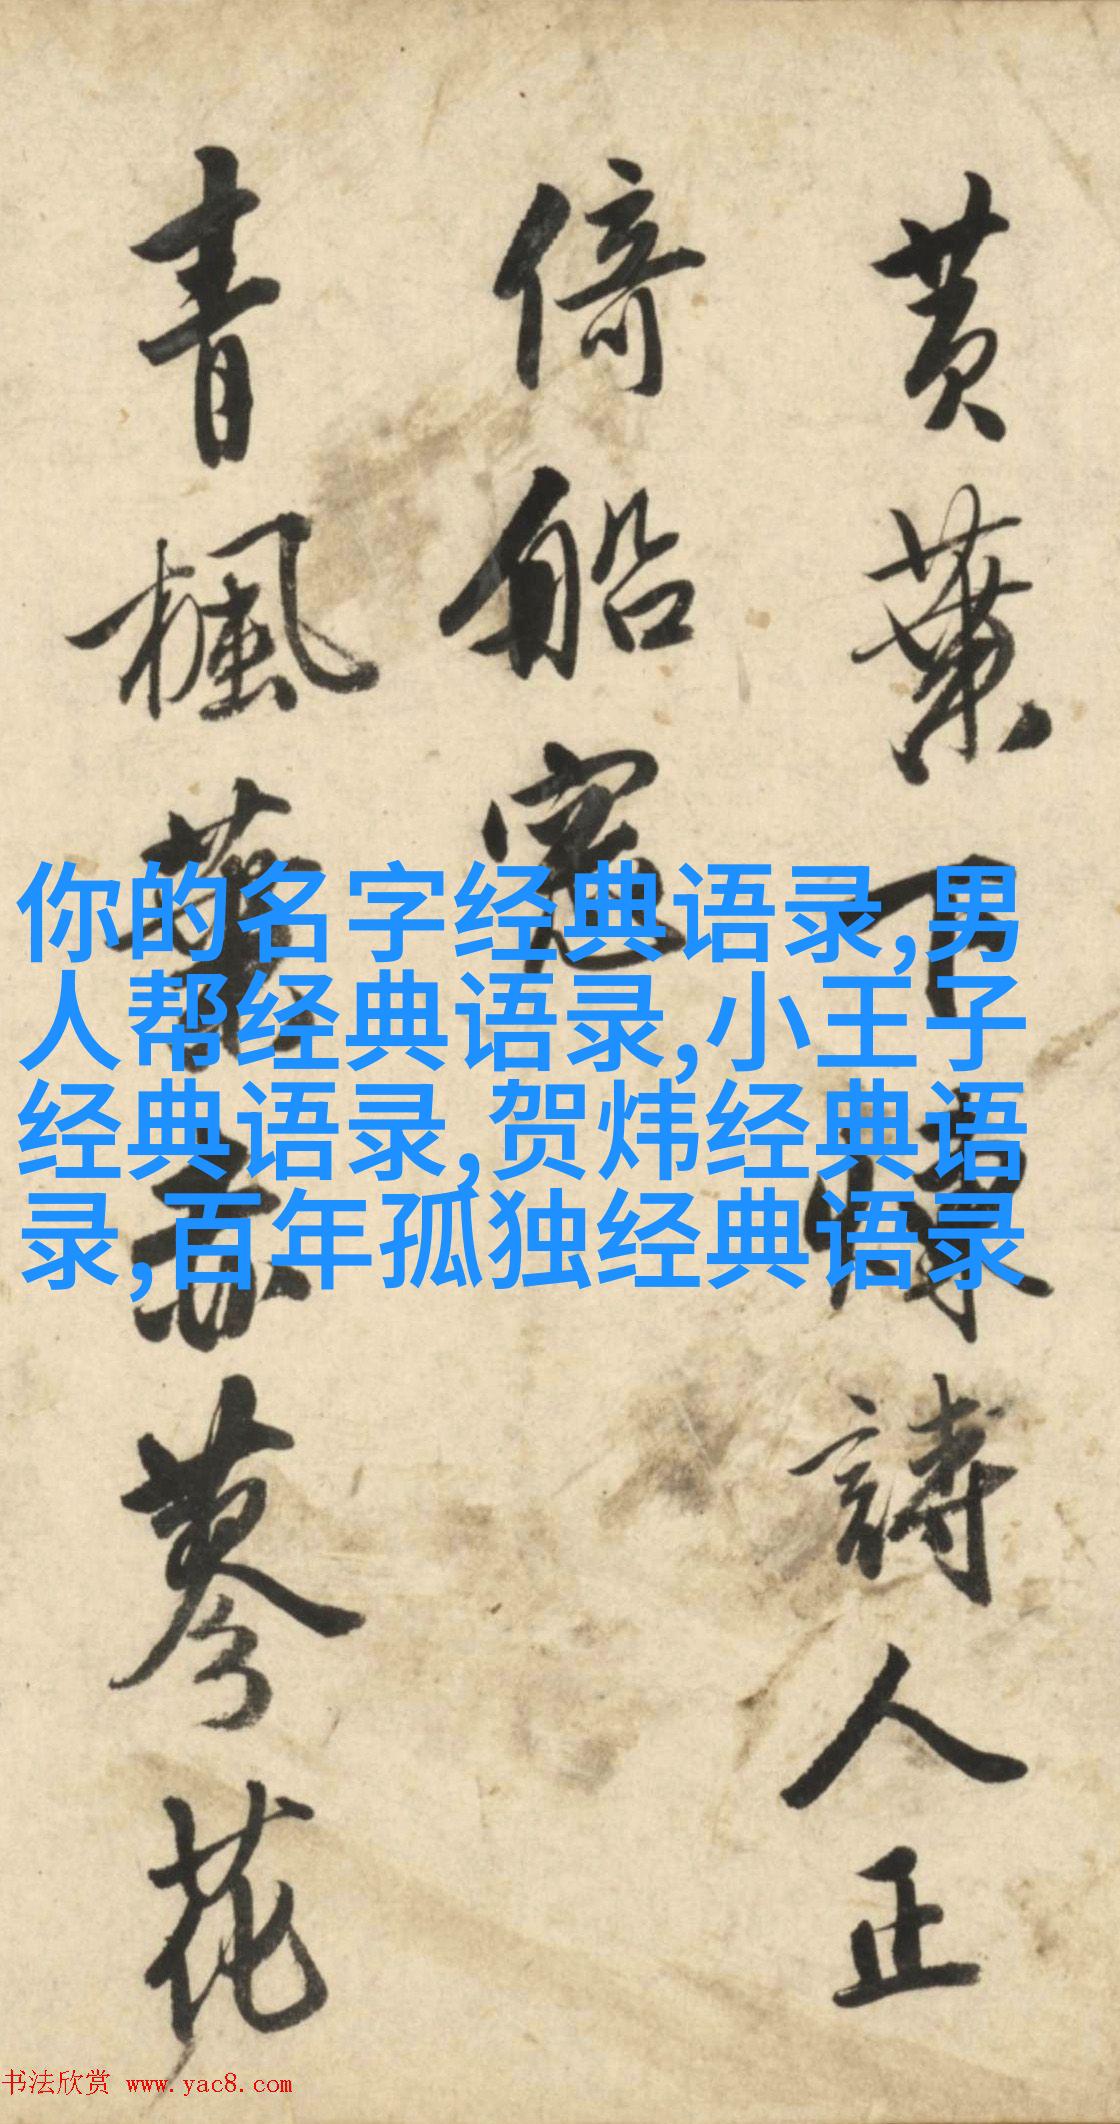 黄葉下詩人正
倚船窓
青楓葉蓼花
你的名字经典语录,男
人帮经典语录,小王子
经典语录,贺炜经典语
录,百年孤独经典语录
书法欣赏 www.yac8.com